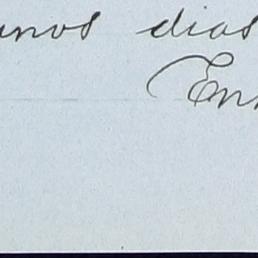 unos dias
En